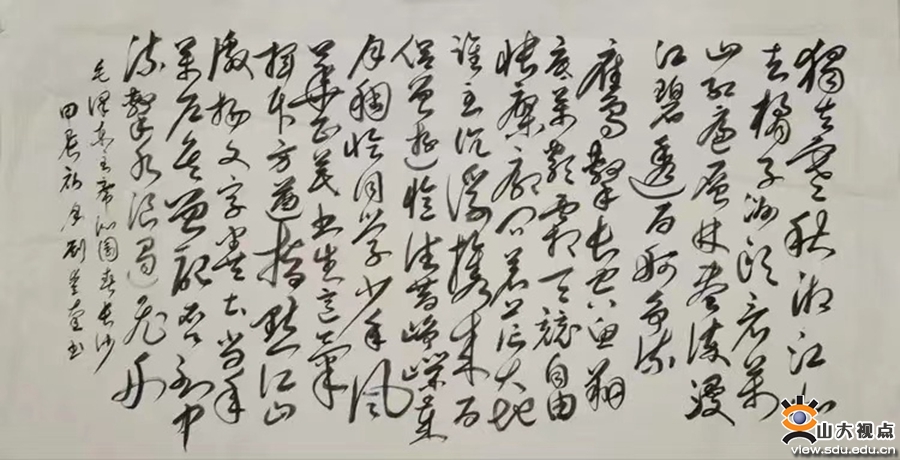 獨立寒秋湘江北
去橘子洲頭看萬
山紅遍層林盡染漫
江碧透百舸爭流
鷹擊長空魚翔
底萬類霜天競自由
悵寥廓問蒼茫大地
誰主沉浮攜來百
侶曾遊憶往昔崢嶸歲
月稠恰同學少年風
華正茂書生意氣
揮斥方遒指點江山
激揚文字糞土當年
萬戶侯曾記否到中
流擊水浪遏飛舟
毛澤東主席沁園春長沙
書
山大视点
view.sdu.edu.cn